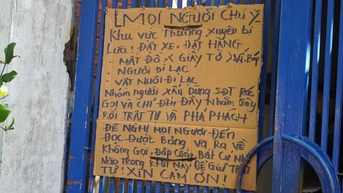 MỌI NGƯỜI CHÚ Ý
Khu vực Thường Xuyên bị
Lừa: ĐẶT XE, ĐẶT HÀNG
- MẤT ĐỒ, GIẤY TỜ
- NGƯỜI ĐI LẠC
- VẬT NUÔI ĐI LẠC
Nhóm người xấu dùng SĐT
GỌI VÀ CHỈ ĐẾN ĐÂY Nhằm Gây
RỐI TRẬT TỰ VÀ PHÁ PHÁCH
ĐỀ NGHỊ MỌI NGƯỜI ĐẾN
ĐỌC ĐƯỢC BẢNG VÀ RA VỀ
KHÔNG GỌI, Đập Cổng Bất Cứ
NÀO TRONG KHU NÀY ĐỂ GIỮ TRẬT
TỰ! XIN CÁM ƠN!